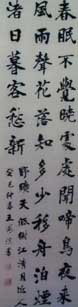 春眠不覺曉處處聞啼鳥夜來
風雨聲花落知多少移舟泊煙
渚日暮客愁新
野曠天低樹江清月近人
癸巳仲春王書